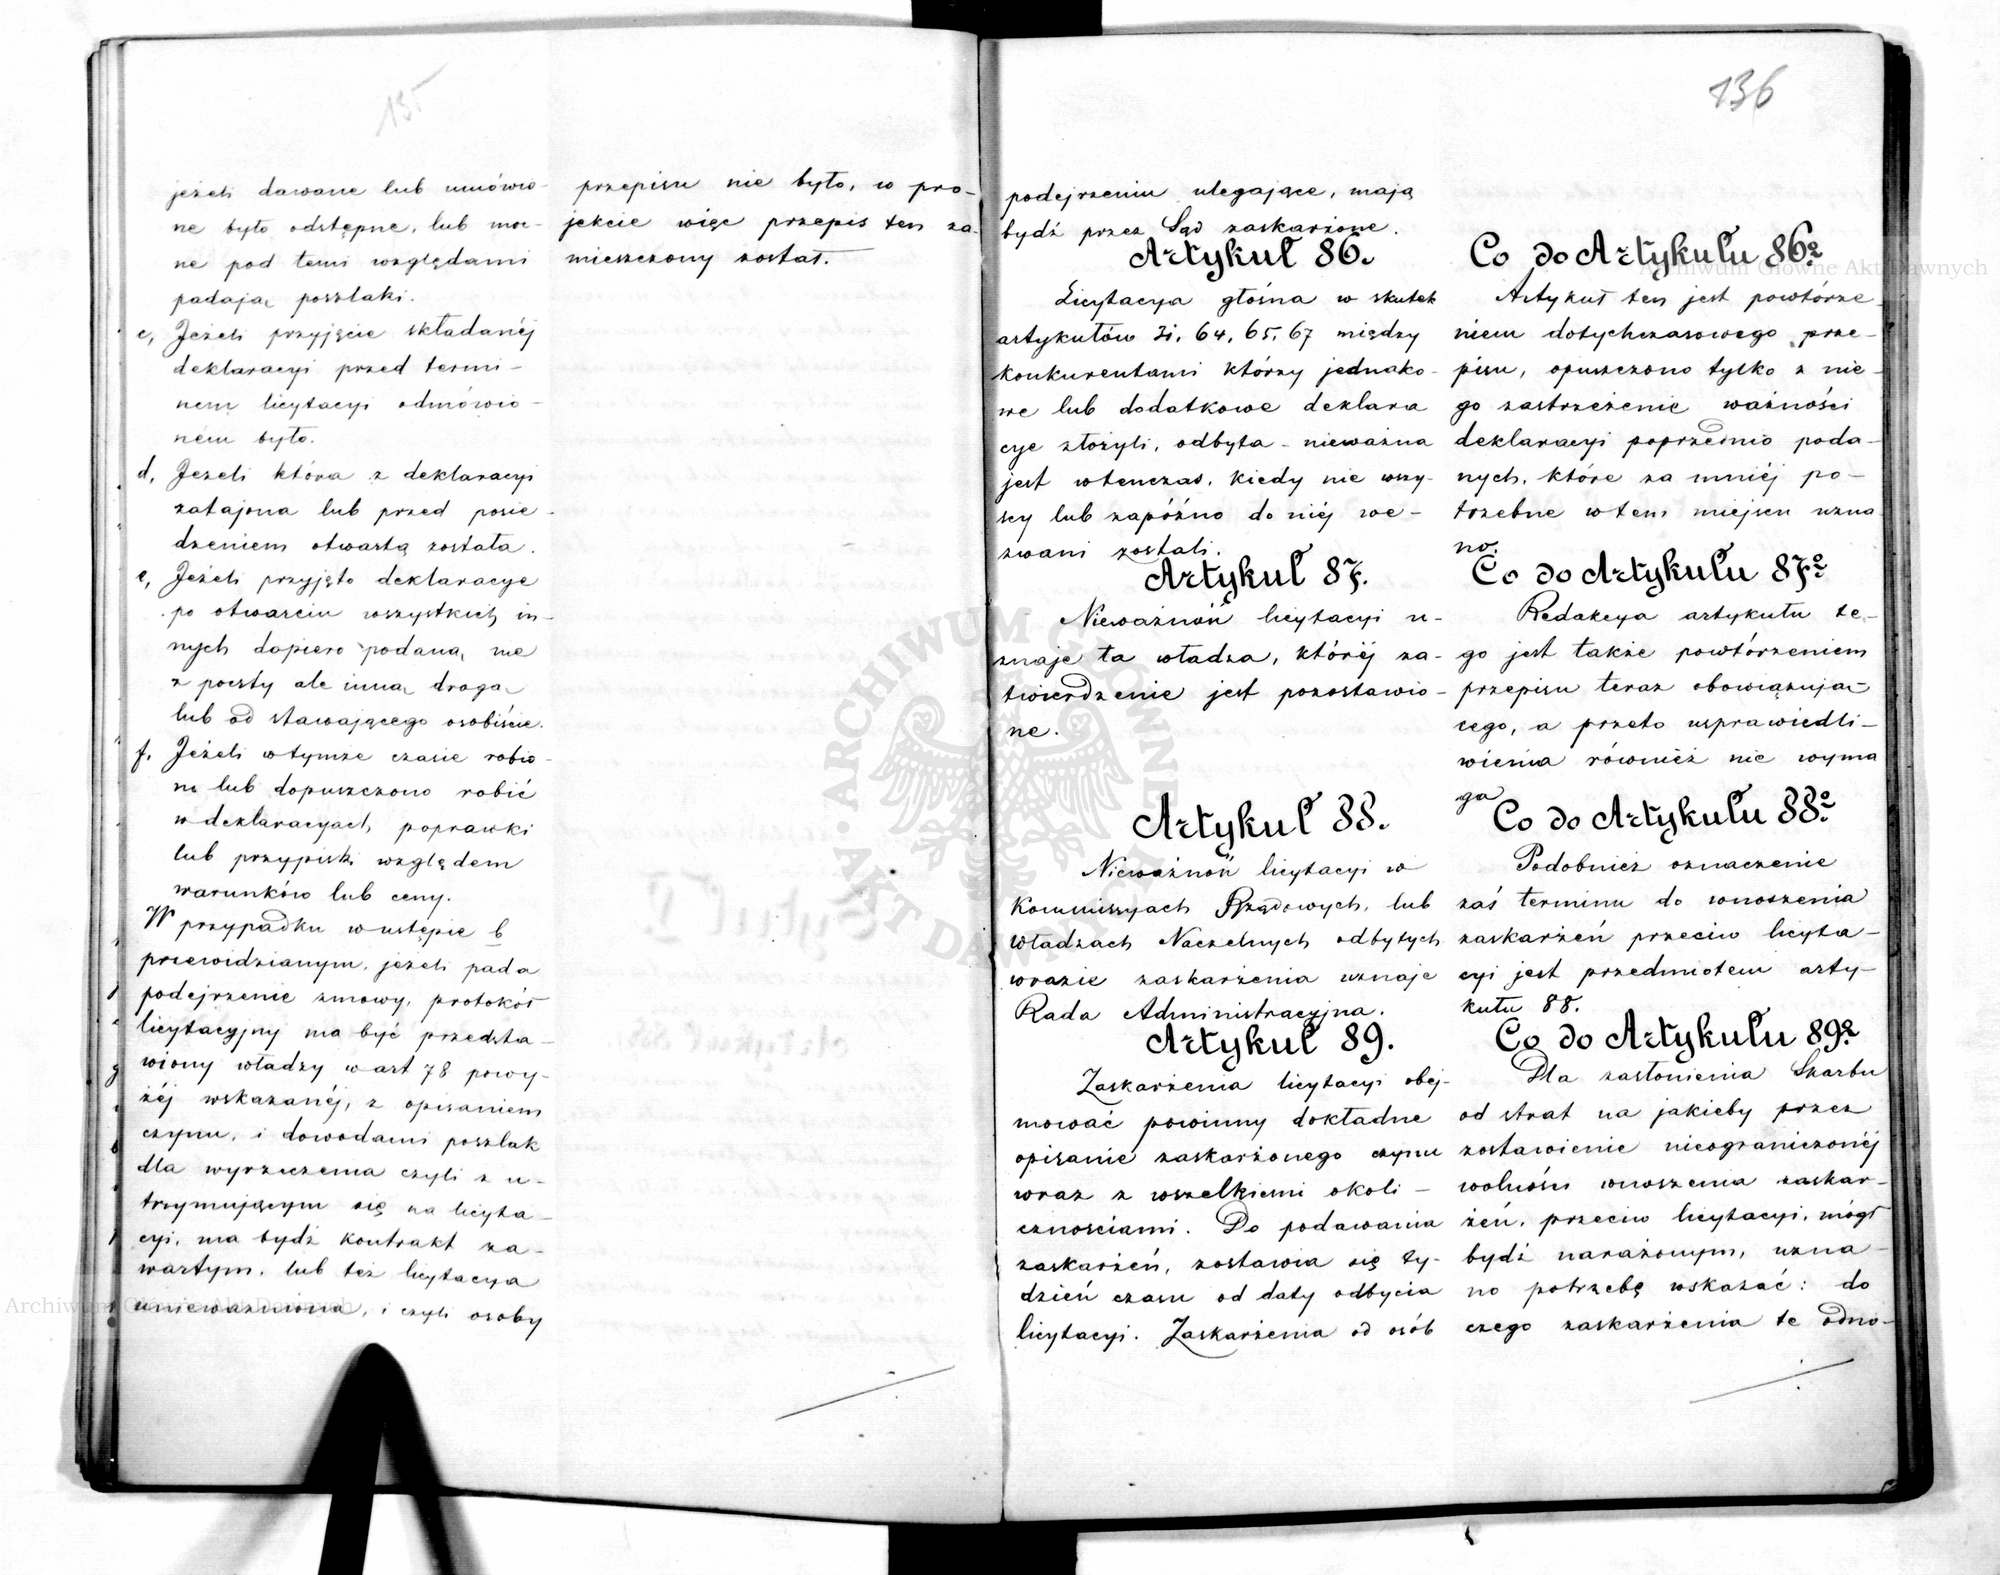 135
jeżeli dawane lub umówio-
ne było odstępne, lub moc-
ne pod temi względami
padają poszlaki.
c, Jeżeli przyjęcie składanéj
deklaracyi przed termi-
nem licytacyi odmówio-
ném było.
d, Jeżeli która z deklaracyi
zatajona lub przed posie-
dzeniem otwartą została.
e, Jeżeli przyjęto deklaracye
po otwarciu wszystkich in-
nych dopiero podaną, nie
z poczty ale inną drogą
lub od stawającego osobiście.
f. Jeżeli w tymże czasie robio-
no lub dopuszczono robić
w deklaracyach poprawki
lub przypiski względem
warunków lub ceny.
W przypadku w ustępie b
przewidzianym, jeżeli pada
podejrzenie zmowy, protokół
licytacyjny ma być przedsta-
wiony władzy w art 78 powy-
żéj wskazanéj, z opisaniem
czynu, i dowodami poszlak
dla wyrzeczenia czyli z u-
trzymującym się na licyta-
cyi, ma bydź kontrakt za-
wartym, lub też licytacya
unieważniona, i czyli osoby
przepisu nie było, w pro-
jekcie więc przepis ten za-
mieszczony został.
136
podejrzeniu ulegające, mają
bydź przez Sąd zaskarżone.
Artykuł 86.
Licytacya głośna w skutek
artykułów 31, 64, 65, 67 między
konkurentami którzy jednako-
we lub dodatkowe deklara
cye złożyli, odbyta - nieważna
jest wtenczas, kiedy nie wszy-
scy lub zapóźno do niéj we-
zwani zostali.
Artykuł 87.
Nieważność licytacyi u-
znaje ta władza, któréj za-
twierdzenie jest pozostawio-
ne.
Artykuł 88.
Nieważność licytacyi w
Kommissyach Rządowych, lub
Władzach Naczelnych odbytych
w razie zaskarżenia uznaje
Rada Administracyjna.
Artykuł 89.
Zaskarżenia licytacyi obéj-
mować powinny dokładne
opisanie zaskarżonego czynu
wraz z wszelkiemi okoli-
cznościami. Do podawania
zaskarżeń, zostawia się ty-
dzień czasu od daty odbycia
licytacyi. Zaskarżenia od osób
Co do Artykułu 86º
Artykuł ten jest powtórze
niem dotychczasowego prze-
pisu, opuszczono tylko z nie-
go zastrzeżenie ważności
deklaracyi poprzednio poda-
nych, które za mniéj po-
trzebne w tem miejscu uzna
no.
Co do Artykułu 87º
Redakcya artykułu te-
go jest także powtórzeniem
przepisu teraz obowiązują-
cego, a przeto usprawiedli-
wienia również nie wyma
ga
Co do Artykułu 88º
Podobnież oznaczenie
zaś terminu do wnoszenia
zaskarżeń przeciw licyta-
cyi jest przedmiotem arty-
kułu 88.
Co do Artykułu 89º
Dla zasłonienia Skarbu
od strat na jakieby przez
zostawienie nieograniczonéj
wolności wnoszenia zaskar-
żeń, przeciw licytacyi, mógł
bydź narażonym, uzna-
no potrzebę wskazać: do
czego zaskarżenia te odno-
Archiwum Główne Akt Dawnych
Archiwum Główne Akt Dawnych
ARCHIWUM GŁÓWNE AKT DAWNYCH